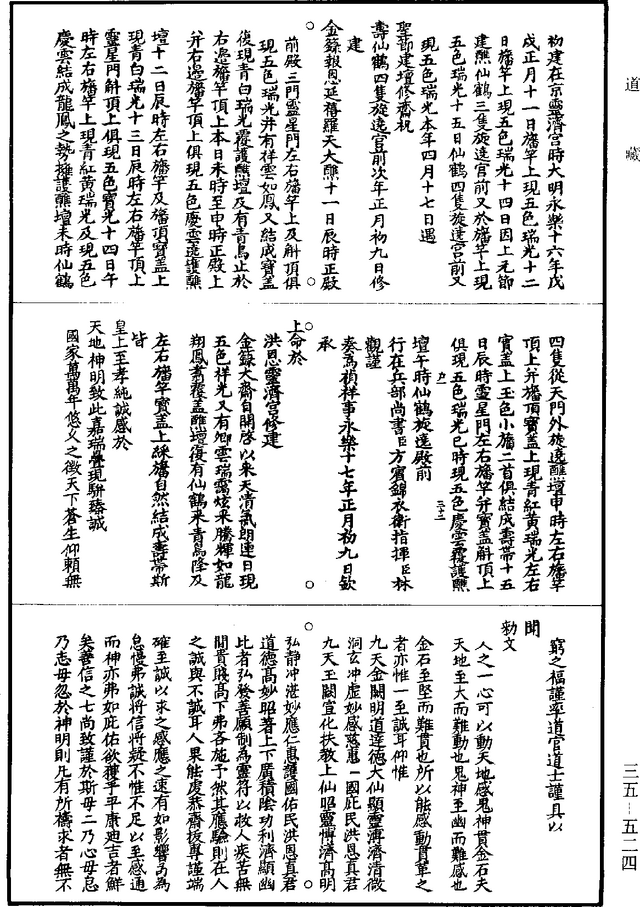 道藏
初建在京靈濟宮時大明永樂十六年戊
戌正月十一日旛竿上現五色瑞光十二
日旛竿上現五色瑞光十四日因上元節
建醮仙鶴三隻旋遶宮前又於旛竿上現
五色瑞光十五日仙鶴四隻旋遶宮前又
現五色瑞光本年四月十七日遇
聖節建壇修齋祝
壽仙鶴四隻旋遶宮前次年正月初九日修
建
金籙報恩延禧羅天大醮十一日辰時正殿
前殿三門靈星門左右旛竿上及斛頂俱
現五色瑞光井有祥雲如鳳又結成寶蓋
復現青白瑞光覆護醮壇及有青鳥止於
右邊旛竿頂上本日未時至申時正殿上
并右邊旛竿頂上俱現五色慶雲遶護醮
壇十二日辰時左右旛竿及旛頂寶蓋上
現青白瑞光十三日辰時左右旛竿頂上
靈星門斛頂上俱現五色寶光十四日午
時左右旛竿上現青紅黃瑞光及現五色
慶雲結成龍鳳之勢擁護醮壇未時仙鶴
四隻從天門外旋遶醮壇申時左右旛竿
頂上并旛頂寶蓋上現青紅黃瑞光左右
寶蓋上玉色小旛二首俱結成壽帶十五
日辰時靈星門左右旛竿并寶蓋斛頂上
俱現五色瑞光巳時現五色慶雲覆護醮
壇午時仙鶴旋遶殿前
行在兵部尚書臣方賓錦衣衛指揮臣林
觀謹
奏為禎祥事永樂十七年正月初九日欽
承
上命於
洪恩靈濟宮修建
金籙大齋自開啓以來天清氣朗連日現
五色祥光又有卿雲瑞靄炫采騰輝如龍
翔鳳翥覆蓋醮壇復有仙鶴來青鳥降及
左右旛竿寶蓋上綵旛自然結成壽帶斯
皆
皇上至孝純誠感於
天地神明致此嘉瑞疊現駢臻誠
國家萬萬年悠久之徵天下蒼生仰賴無
窮之福謹率道官道士謹具以
聞
勑文
人之一心可以動天地感鬼神貫金石夫
天地至大而難動也鬼神至幽而難感也
金石至堅而難貫也所以能感動貫革之
者亦惟一至誠耳仰惟
九天金闕明道達德大仙顯靈溥濟清微
洞玄沖虛妙感慈惠䕶國庇民洪恩真君
九天玉闕宣化扶教上仙昭靈博濟高明
弘靜沖湛妙應仁惠護國佑民洪恩真君
道德高妙昭著上下廣積陰功利濟顯幽
比者弘發善願制為靈符以救人疾苦無
間貴賤高下弗吝施予然其應驗則在人
之誠與不誠耳人果能虔恭齋祓專謹端
確至誠以求之感應之速有如影響苟為
怠慢弗誠將信將疑不惟不足以至感通
而神亦弗如庇佑欲獲乎平康迪吉者鮮
矣善信之士尚致謹於斯毋二乃心毋怠
乃志毋忽於神明則凡有所禱求者無不
三五—五二四